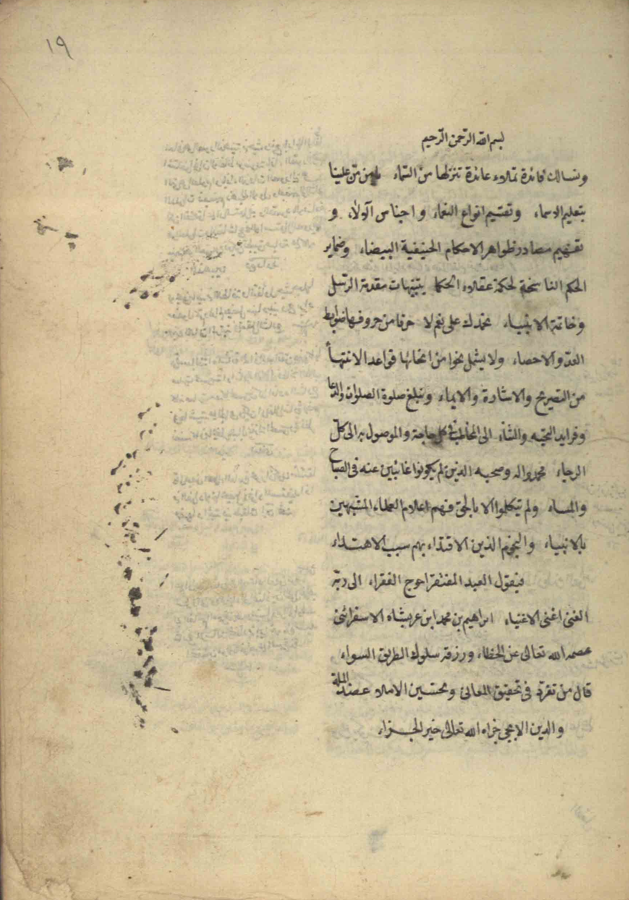 ١٩
بسم الله الرحمن الرحيم
ونسالك فائدة عائدة تنزلها من السماء من علينا
بتعليم الاسماء وتقسيم انواع النعماء واجناس آلولاء و
تفهيم مصادر ظواهر الاحكام الحنيفية البيضاء وضماير
الحكم الناسخة لحكمة عقلاء الحكماء بتنبيهات مقدمة الرسل
وخاتمة الانبياء نحمدك على نعم لا حرفا من حروفها ضوابط
العد والاحصاء ولا يشمل نحوا من انحائها قواعد الانتهاء
من التصريح والاشارة والايماء ونبلغ صلوة الصلوات والدعا
وفرايد التحية والثناء الى المخاطب في كل حاجة والموصول به الى كل
الرجاء محمد واله وصحبه الذين لم يكونوا غائبين عنه في الصباح
والمساء ولم يتكلموا الا بالحق فهم اعلام العلماء المشبهين
بالانبياء والنجوم الذين الاقتداء بهم سبب الاهتداء
فيقول العبد المفتقر احوج الفقراء الى ربه
الغنى اغنى الاغنياء ابراهيم بن محمد ابن عربشاه الاسفرائنى
عصمه الله تعالى عن الخطاء ورزقه سلوك الطريق السواء
قال من تفرد في تحقيق المعانى وتحسين الاملاء عضد الملة
والدين الايجى جزاه الله تعالى خير الجزاء